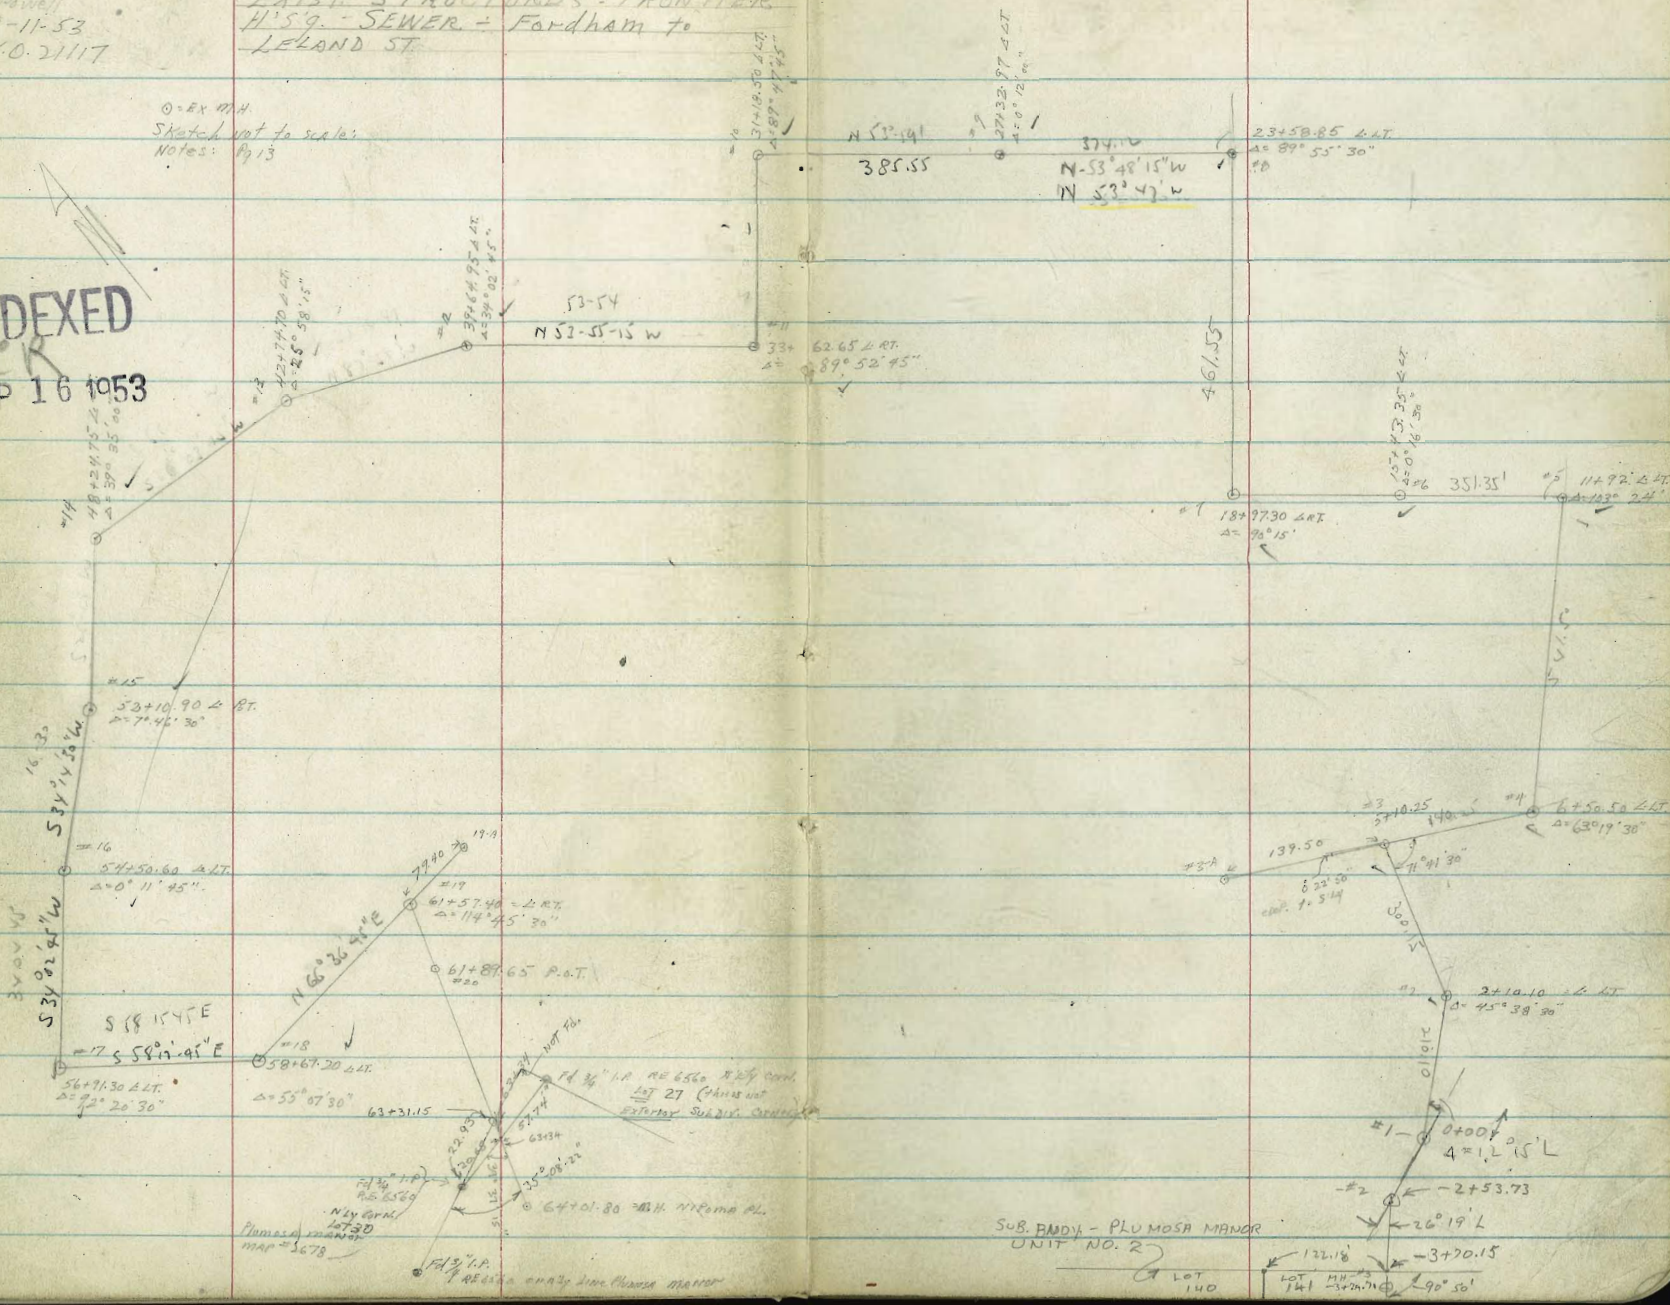 -11-53
H'sg. - SEWER - Fordham to
LELAND ST.
.O. 21117
⊙ = EX M.H.
Sketch not to scale:
Notes: Pg 13
DEXED
P 16 1953
31+18.50 ∠ LT.
Δ=89° 47' 45"
N 53°-49'
385.55
#9
27+32.97 ∠ LT
Δ=0° 12' 00"
374.12
N-53° 48' 15" W
N 53° 47' W
23+58.85 ∠ LT.
Δ= 89° 55' 30"
#8
#12
39+64.95 ∠ LT.
Δ=34° 02' 45"
53-54
N 53-55-15 W
#11
33+ 62.65 ∠ RT.
Δ= 89° 52' 45"
#13
42+74.70 ∠ LT.
Δ=25° 58' 15"
461.55
#14
48+24.75 ∠
Δ=39° 35' 00"
15+43.35 ∠ LT.
Δ=0° 16' 30"
#6
351.35'
#5
11+92 ∠ LT.
Δ=103° 24'
#7
18+97.30 ∠ RT.
Δ= 90° 15'
541.5
#15
52+10.90 ∠ RT.
Δ=7° 46' 30"
16-30
S 34° 14' 30" W.
#16
54+50.60 ∠ LT.
Δ=0° 11' 45"
S 34° 02' 45" W
S 58 15 45 E
#17
S 58° 17' 45" E
56+91.30 ∠ LT.
Δ= 92° 20' 30"
#18
58+67.20 ∠ LT.
Δ=55° 07' 30"
N 66° 36' 45" E
79.40
19-A
#19
61+57.40 = ∠ RT.
Δ= 114° 45' 30"
61+89.65 P.O.T.
#20
NOT Fd.
63+31.15
22.93
57.74
63+34
Fd 3/4" I.P. RE 6560 N'Ely Corn.
LOT 27 (this is not
Exterior Subdiv. Corner)
35°-08'-22"
64+01.80 = M.H. N'Poma PL.
Fd 3/4" I.P.
R.E. 6560
N'Ly Corn.
Lot 30
Plumosa manor
MAP #2678
Fd 3/4" I.P.
RE 6560 on N'Ly Line Plumosa MANOR
#3
5+10.25
140.25
#4
6+50.50 ∠ LT.
Δ=63° 19' 30"
#3-A
139.50
0° 22' 50"
71° 41' 30"
300.15
#2
2+10.10 = ∠ LT
Δ= 45° 38' 30"
210.10
#1
0+00
Δ=12° 15' L
-#2
-2+53.73
26° 19' L
SUB. BNDY - PLUMOSA MANOR
UNIT NO. 2
122.18'
-3+70.15
LOT
140
LOT
141
M.H. #3
90° 50'